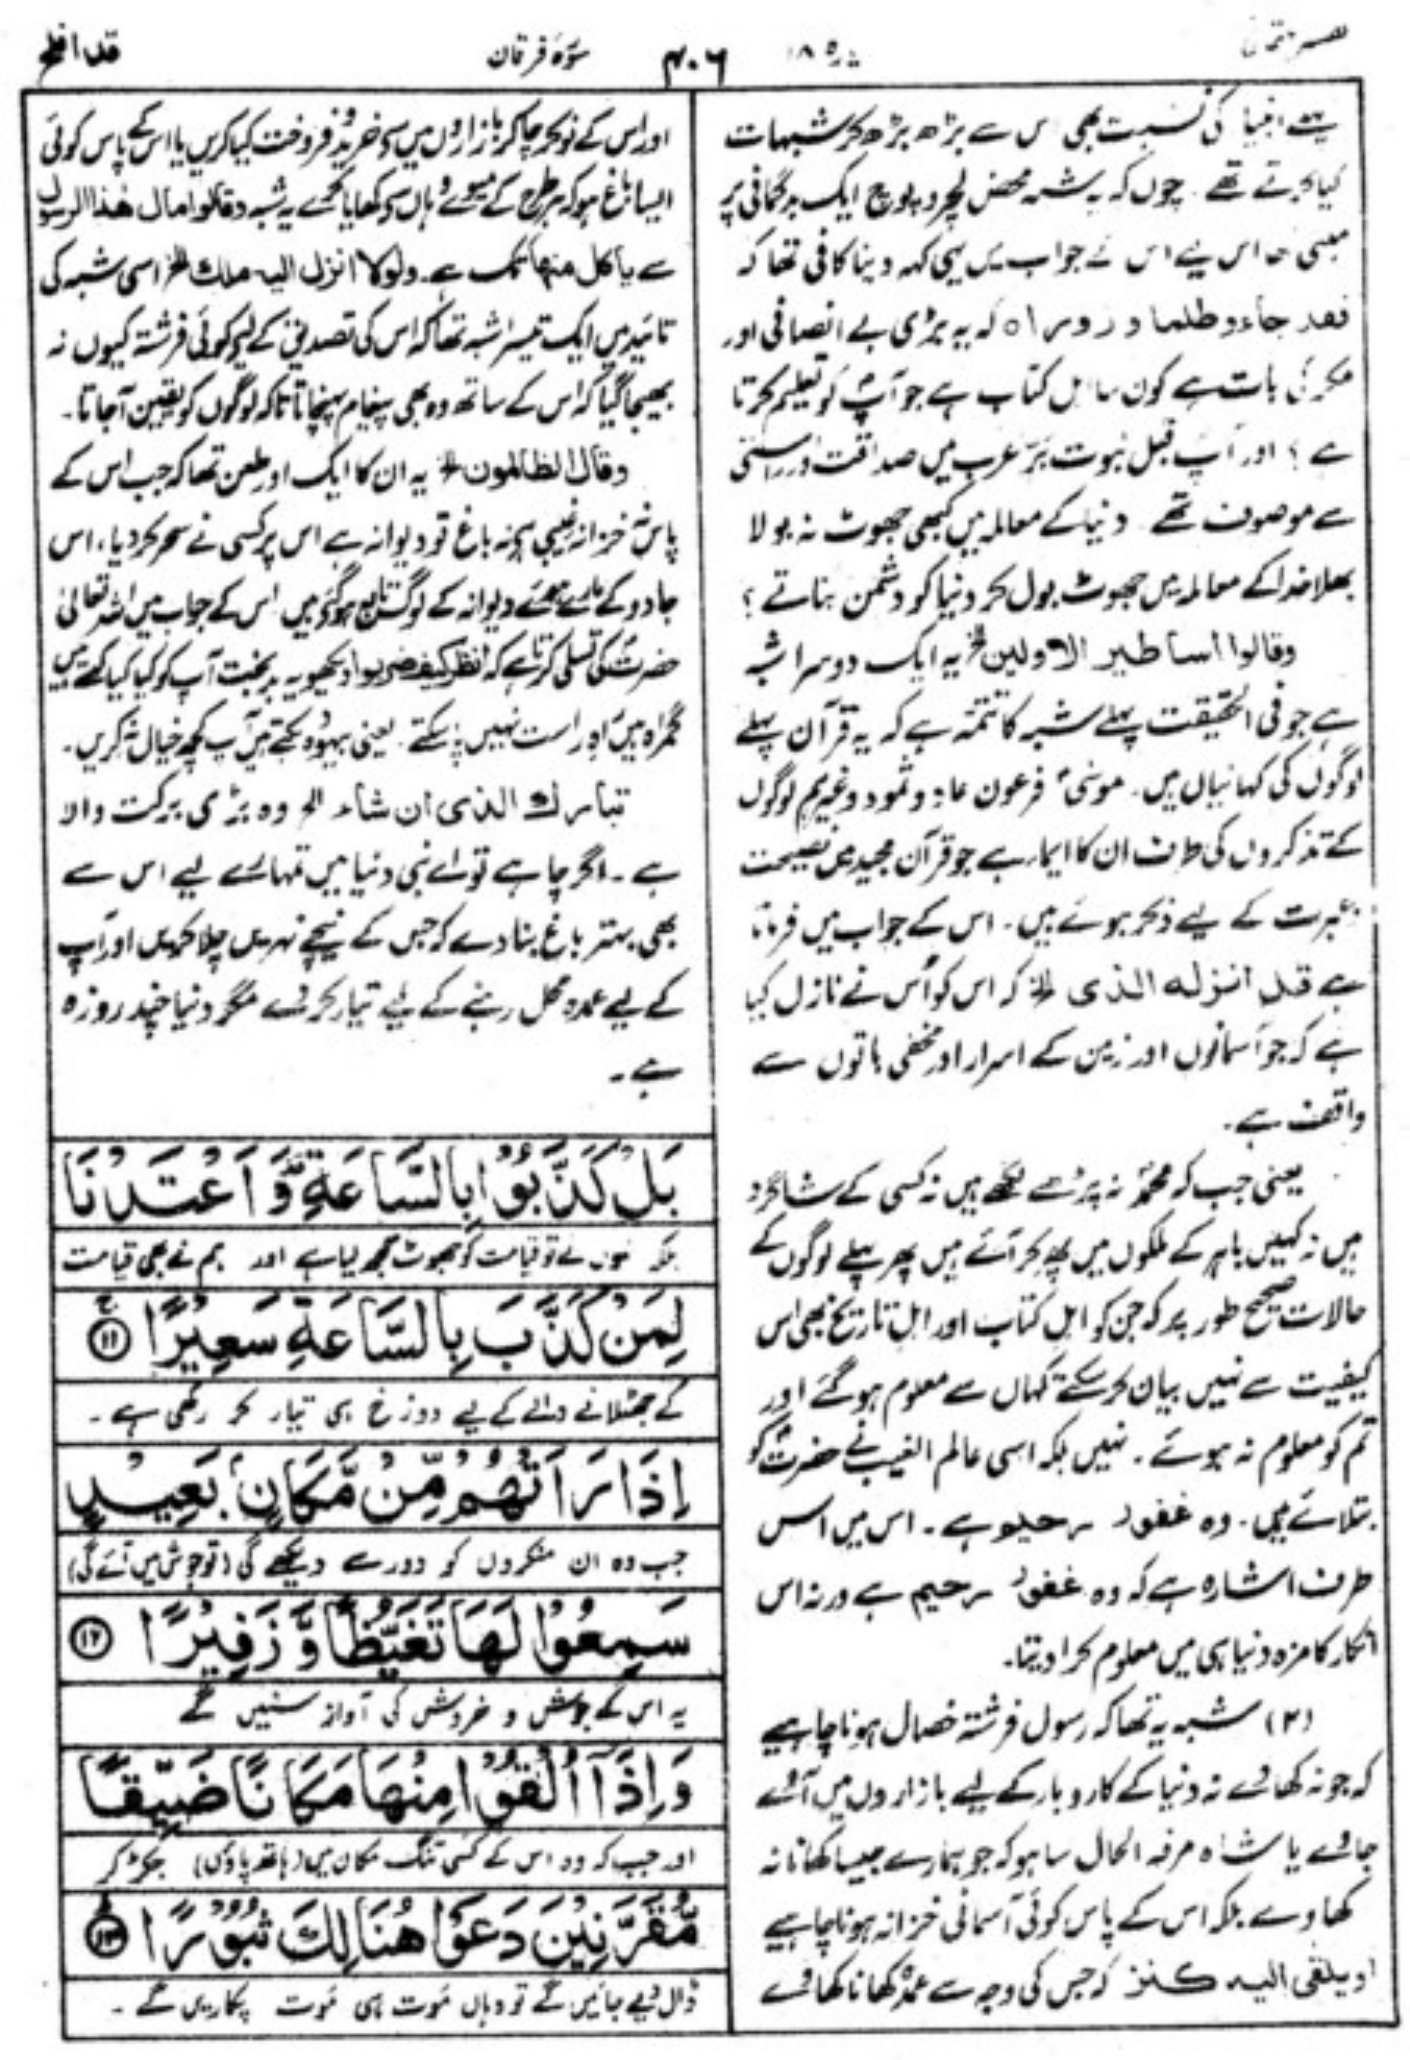 پارہ ۱۸
۴۰۶
سورۃ فرقان
قد افلح
انبیا کی نسبت بھی اس سے بڑھ بڑھ کر شبہات
کیا کرتے تھے۔ چوں کہ یہ شبہ محض لچر و پوچ ایک بدگمانی پر
مبنی تھا اس لیے اس کے جواب میں یہی کہہ دینا کافی تھا کہ
فقد جاءو ظلما و زورا ہ کہ یہ بڑی بے انصافی اور
مکر کی بات ہے کون سا اہل کتاب ہے جو آپؐ کو تعلیم کرتا
ہے؟ اور آپ قبل نبوت عرب میں صداقت و راستی
سے موصوف تھے۔ دنیا کے معاملہ میں کبھی جھوٹ نہ بولا
بھلا خدا کے معاملہ میں جھوٹ بول کر دنیا کو دشمن بناتے؟
وقالوا اساطیر الاولین الخ یہ ایک دوسرا شبہ
ہے جو فی الحقیقت پہلے شبہ کا تتمہ ہے کہ یہ قرآن پہلے
لوگوں کی کہانیاں ہیں۔ موسیٰؑ فرعون عاد و ثمود وغیرہم لوگوں
کے تذکروں کی طرف ان کا ایما ہے جو قرآن مجید میں نصیحت
و عبرت کے لیے ذکر ہوئے ہیں۔ اس کے جواب میں فرماتا
ہے قل انزلہ الذی الخ کہ اس کو اُس نے نازل کیا
ہے کہ جو آسمانوں اور زمین کے اسرار اور مخفی باتوں سے
واقف ہے۔
یعنی جب کہ محمدؐ نہ پڑھے لکھے ہیں نہ کسی کے شاگرد
ہیں نہ کہیں باہر کے ملکوں میں پھر کر آئے ہیں پھر پہلے لوگوں کے
حالات صحیح طور پر کہ جن کو اہل کتاب اور اہل تاریخ بھی اس
کیفیت سے نہیں بیان کر سکتے کہاں سے معلوم ہو گئے اور
تم کو معلوم نہ ہوئے۔ نہیں بلکہ اسی عالم الغیب نے حضرتؐ کو
بتلائے ہیں۔ وہ غفور رحیم ہے۔ اس میں اس
طرف اشارہ ہے کہ وہ غفور رحیم ہے ورنہ اس
انکار کا مزہ دنیا ہی میں معلوم کرا دیتا۔
(۲) شبہ یہ تھا کہ رسول فرشتہ خصال ہونا چاہیے
کہ جو نہ کھائے نہ دنیا کے کاروبار کے لیے بازاروں میں آئے
جائے یا شاہ مرفہ الحال سا ہو کہ جو ہمارے جیسا کھانا نہ
کھاوے بلکہ اس کے پاس کوئی آسمانی خزانہ ہونا چاہیے
او یلقی الیہ کنز کہ جس کی وجہ سے عمدہ کھانا کھائے
اور اس کے نوکر چاکر بازاروں میں سے خرید و فروخت کیا کریں یا اس کے پاس کوئی
ایسا باغ ہو کہ ہر طرح کے میوے وہاں سے کھایا کرے یہ شبہ وقالوا مال ھذا الرسول
سے یاکل منھا تک ہے۔ ولولا انزل الیہ ملک الخ اسی شبہ کی
تائید میں ایک تیسرا شبہ تھا کہ اس کی تصدیق کے لیے کوئی فرشتہ کیوں نہ
بھیجا گیا کہ اس کے ساتھ وہ بھی پیغام پہنچاتا تاکہ لوگوں کو یقین آ جاتا۔
وقال الظالمون الخ یہ ان کا ایک اور طعن تھا کہ جب اس کے
پاس نہ خزانہ غیبی ہے نہ باغ تو دیوانہ ہے اس پر کسی نے سحر کر دیا، اس
جادو کے مارے ہوئے دیوانہ کے لوگ تابع ہو گئے ہیں اس کے جواب میں اللہ تعالیٰ
حضرتؐ کی تسلی کرتا ہے کہ انظر کیف ضربوا دیکھو یہ بدبخت آپ کو کیا کیا کہتے ہیں
گمراہ ہیں راہ راست نہیں پا سکتے۔ یعنی بیہودہ بکتے ہیں آپ کچھ خیال نہ کریں۔
تبارک الذی ان شاء الخ وہ بڑی برکت والا
ہے۔ اگر چاہے تو اے نبی دنیا میں تمہارے لیے اس سے
بھی بہتر باغ بنا دے کہ جس کے نیچے نہریں چلا کریں اور آپ
کے لیے عمدہ محل رہنے کے لیے تیار کر دے مگر دنیا چند روزہ
ہے۔
بَلْ كَذَّبُوْا بِالسَّاعَةِ وَاَعْتَدْنَا
بلکہ انہوں نے تو قیامت کو جھوٹ سمجھ لیا ہے اور ہم نے بھی قیامت
لِمَنْ كَذَّبَ بِالسَّاعَةِ سَعِيْرًا ۝۱۱
کے جھٹلانے والے کے لیے دوزخ بھی تیار کر رکھی ہے۔
اِذَا رَاَتْهُمْ مِّنْ مَّكَانٍ بَعِيْدٍ
جب وہ ان منکروں کو دور سے دیکھے گی (تو جوش میں آئے گی)
سَمِعُوْا لَهَا تَغَيُّظًا وَّزَفِيْرًا ۝۱۲
یہ اس کے جوش و خروش کی آواز سنیں گے
وَاِذَآ اُلْقُوْا مِنْهَا مَكَانًا ضَيِّقًا
اور جب کہ وہ اس کے کسی تنگ مکان میں (ہاتھ پاؤں) جکڑ کر
مُّقَرَّنِيْنَ دَعَوْا هُنَالِكَ ثُبُوْرًا ۝۱۳
ڈال دیے جائیں گے تو وہاں موت ہی موت پکاریں گے۔